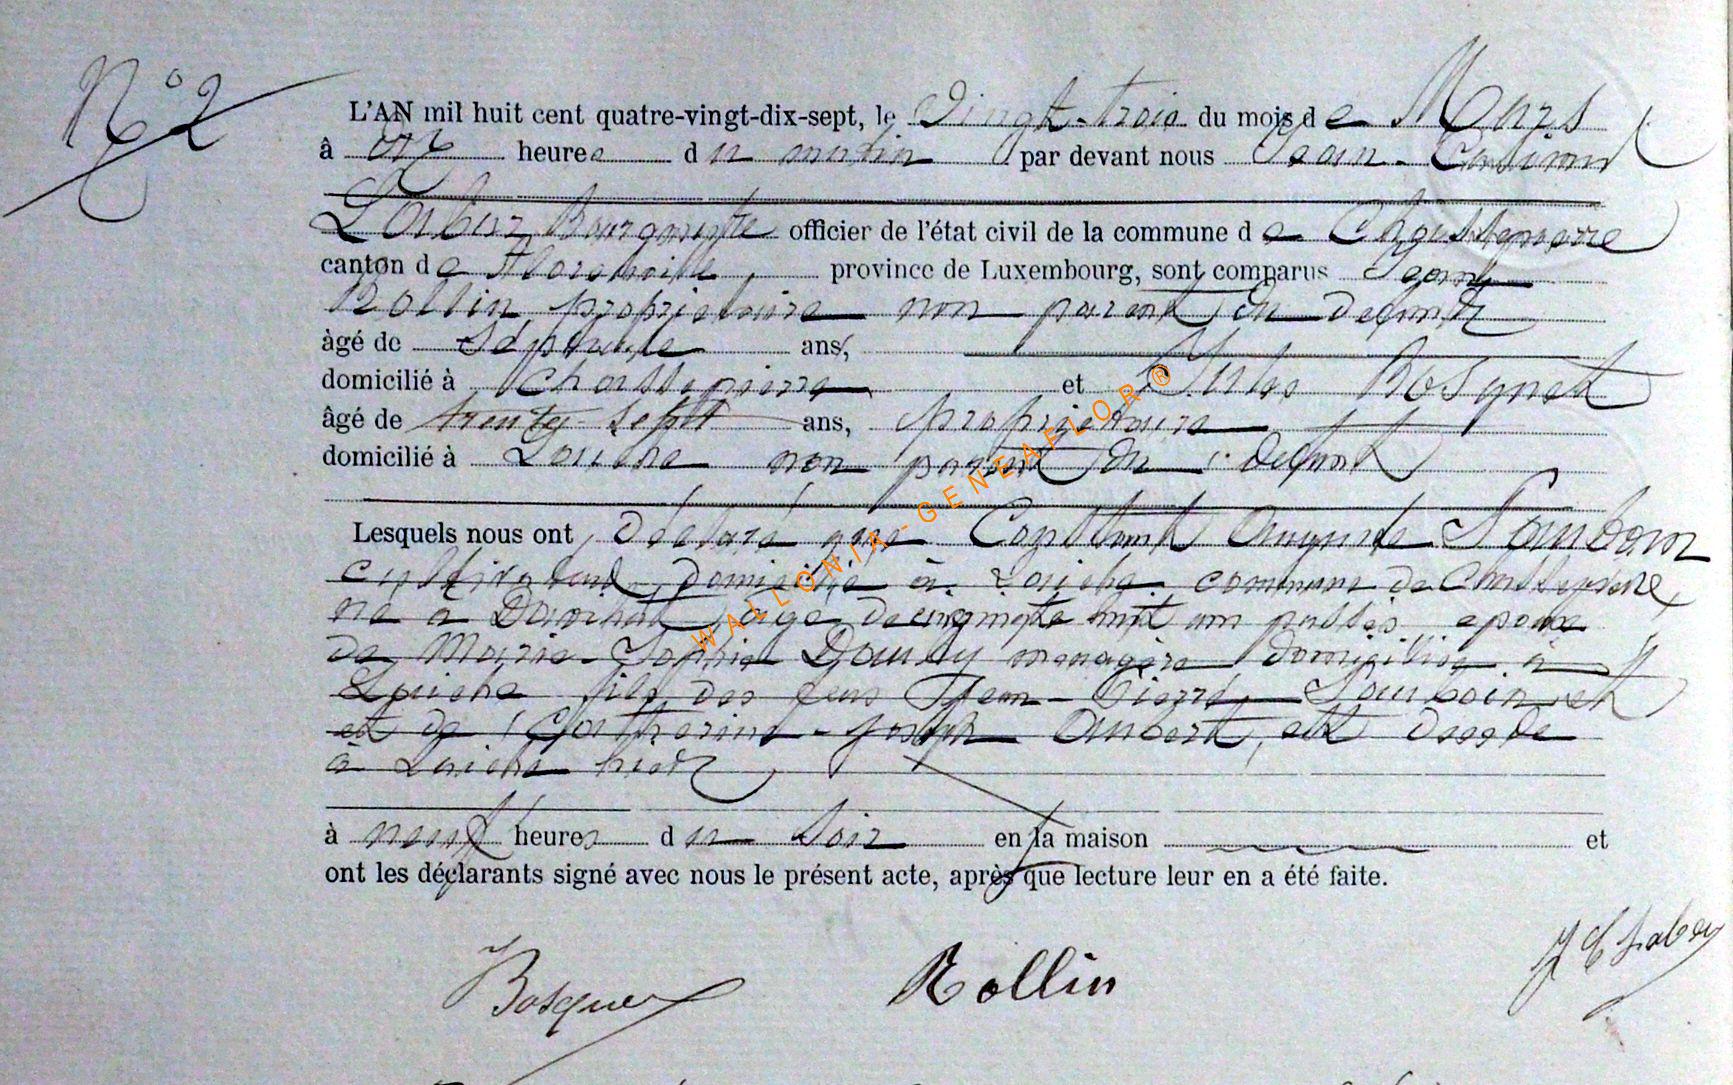 N° 2
L'AN mil huit cent quatre-vingt-dix-sept, le Vingt-trois du mois de Mars
à onze heures du matin par devant nous Jean-Constant
Labbez Bourgmestre officier de l'état civil de la commune de Chassepierre
canton de Florenville, province de Luxembourg, sont comparus
Rollin propriétaire non parent du defunt
âgé de ans,
domicilié à Chassepierre et Jules Bosquet
âgé de trente-sept ans, propriétaire
domicilié à Laiche non parent du defunt
Lesquels nous ont déclaré que Constant Auguste Saubain
cultivateur, domicilié à Laiche commune de Chassepierre,
né à âgé de cinquante huit ans passés epoux
de Marie-Sophie Gourdy menagère domiciliée à
Laiche fils des feus Jean-Pierre Saubain et
et de Catherine-Joseph Aubert, est decede
à Laiche hier
à neuf heures du soir en la maison et
ont les déclarants signé avec nous le présent acte, après que lecture leur en a été faite.
Bosquet Rollin J C Labbez
WALLONIA-GENEAFLOR ®